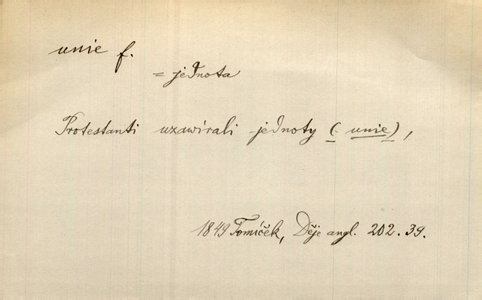 unie f.
= jednota
Protestanti uzawírali jednoty (unie),
1849 Tomíček, Děje angl. 202. 39.